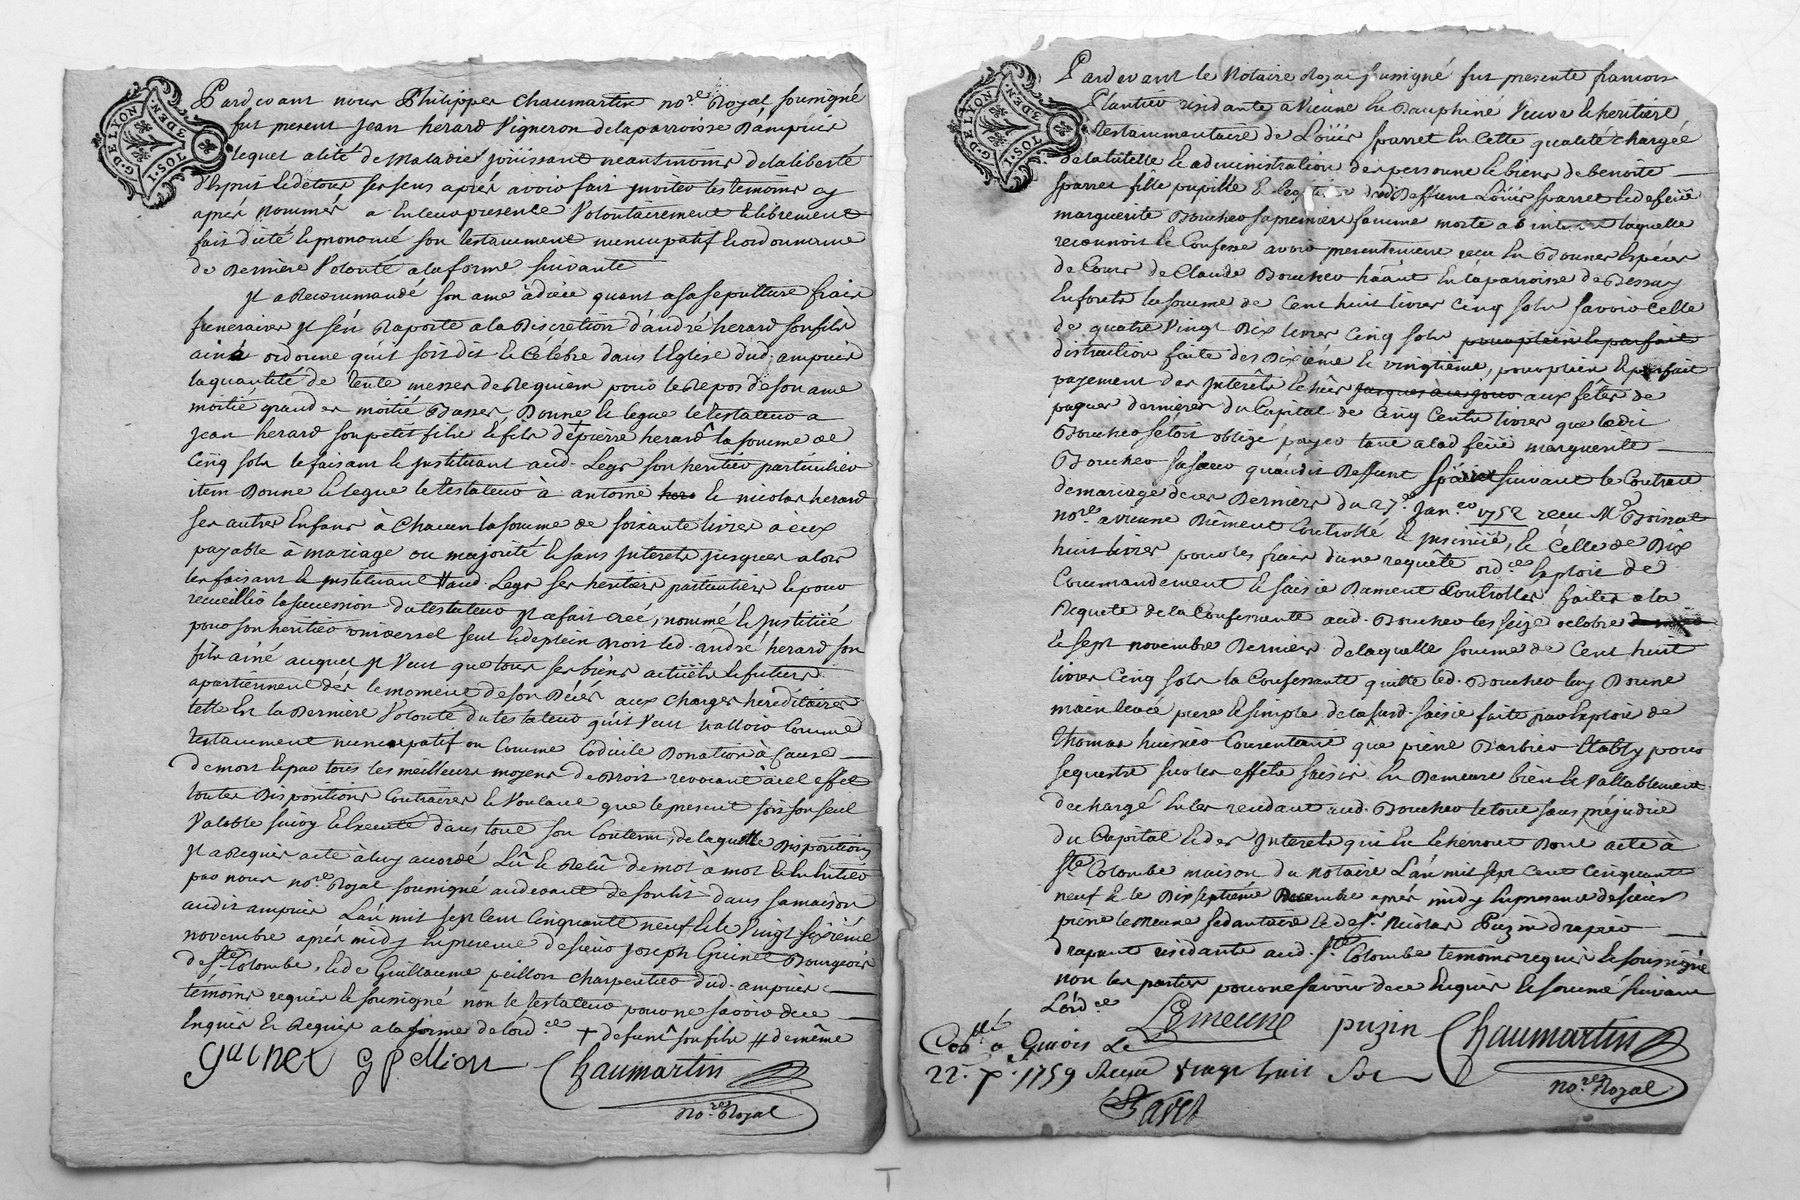 G. DE LYON
1 SOL. 3 DEN.
Pardevant nous Philippes Chaumartin no.re Royal soussigné
fut present jean herard Vigneron de la parroisse d'ampuis
lequel alité de maladie joüissant néantmoins de la liberté
d'esprit et de tous ses sens après avoir fait inviter les temoins cy
après nommés a en leur presence volontairement et librement
fait dicté et prononcé son testament nuncupatif et ordonnance
de derniere volonté a la forme suivante
jl a recommandé son ame à dieu quant a sa sepulture frais
funeraires jl s'en raporte a la discretion d'andré herard son fils
ainé ordonne qu'il soit dit et celebré dans l'Eglise dud. ampuis
la quantité de trente messes de Requiem pour le repos de son ame
moitié grandes moitié basses, Donne et legue le testateur a
jean herard son petit fils et fils de + pierre herard la somme de
cinq sols le faisant et jnstituant aud. Legs son heritier particulier
item donne et legue le testateur à antoine hera et nicolas herard
ses autres Enfans à chacun la somme de soixante livres à eux
payable à mariage ou majorité et sans jnterets jusques alors
les faisant et jnstituant # aud. Legs ses heritiers particuliers et pour
recueillir la succession du testateur jl a fait créé, nommé et jnstitué
pour son heritier universel seul et de plein droit led. andré herard son
fils ainé auquel jl veut que tous ses biens actuels et futurs
apartiennent dès le moment de son décés aux charges hereditaires
telle Est la derniere volonté du testateur qu'il veut valloir comme
testament nuncupatif ou comme codicile donation à cause
de mort et par tous les meilleurs moyens de droit revocant à cet effet
toutes dispositions contraires et voulant que le present soit son seul
valable suivy et Executé dans tout son contenu, de laquelle disposition
jl a requis acte à luy accordé Lû et relû de mot à mot et en entier
par nous no.re Royal soussigné audevant de son lit dans sa maison
audit ampuis L'an mil sept cent cinquante neuf et le vingt sixième
novembre après midy En presence de sieur joseph Guinet Bourgeois
de s.te Colombe, et de Guillaume peillon charpentier dud. ampuis
temoins requis et soussigné non le testateur pour ne sçavoir de ce
Enquis et Requis a la forme de l'ord.ce + defunt son fils # de même
Guinet G Pellion Chaumartin
no.re Royal
G. DE LYON
1 SOL. 3 DEN.
Pardevant le Notaire Royal soussigné fut presente francoise
Plantier residante a Vienne En Dauphiné Veuve et heritiere
testammentaire de Loüis sparret En cette qualité chargée
de la tutelle et administration des personne et biens de benoite
sparret fille pupille et dud deffunt Loüis sparret et de feüe
marguerite Boucher sa premiere femme morte ab laquelle
reconnoit et Confesse avoir presentement reçu En bonnes Espéces
de Cours de Claude Boucher h̃ant En la parroisse de Bessay
En forets la somme de cent huit livres cinq sols savoir celle
de quatre vingt dix livres cinq sols pour plein et parfait
distraction faite des dixiéme et vingtième, pour plein et parfait
payement des jnterêts Echûs jusques à ce jour aux fêtes de
paques dernieres du Capital de cinq cents livres que ledit
Boucher s'etoit obligé payer tant a lad. feüe marguerite
Boucher sa soeur qu'audit deffunt sparret suivant le Contrat
de mariage de ces derniers du 27.e jan.er 1752 reçu M.e Boissat
no.re a vienne düement Controllé et jnsinüé, et celle de dix
huit livres pour les frais d'une requête ord.ces Exploit de
Commandement et saisie düment Controllés faites a la
Requete de la Confessante aud. Boucher les seize octobre
et sept novembre derniers de laquelle somme de cent huit
livres cinq sols la Confessante quitte led. Boucher luy donne
main levée pure et simple de la susd. saisie faite par Exploit de
thomas huissier Consentant que pierre Barbier Etably pour
sequestre sur les effets saisis En demeure bien et vallablement
dechargé En les rendant aud. Boucher le tout sans préjudice
du Capital et des jnterets qui En Echerront dont acte à
s.te Colombe maison du notaire L'an mil sept cent cinquante
neuf et le dix septiéme decembre après midy En presence de sieurs
pierre lemeune et de s.r Nicolas Puzin drapier
drapant residants aud. s.te Colombe temoins requis et soussignés
non les parties pour ne savoir de ce Enquis et sommé suivant
L'ord.ce
Lemeune puzin Chaumartin
no.re Royal
Con.llé a Givors le
22. x. 1759 Reçu vingt huit sols